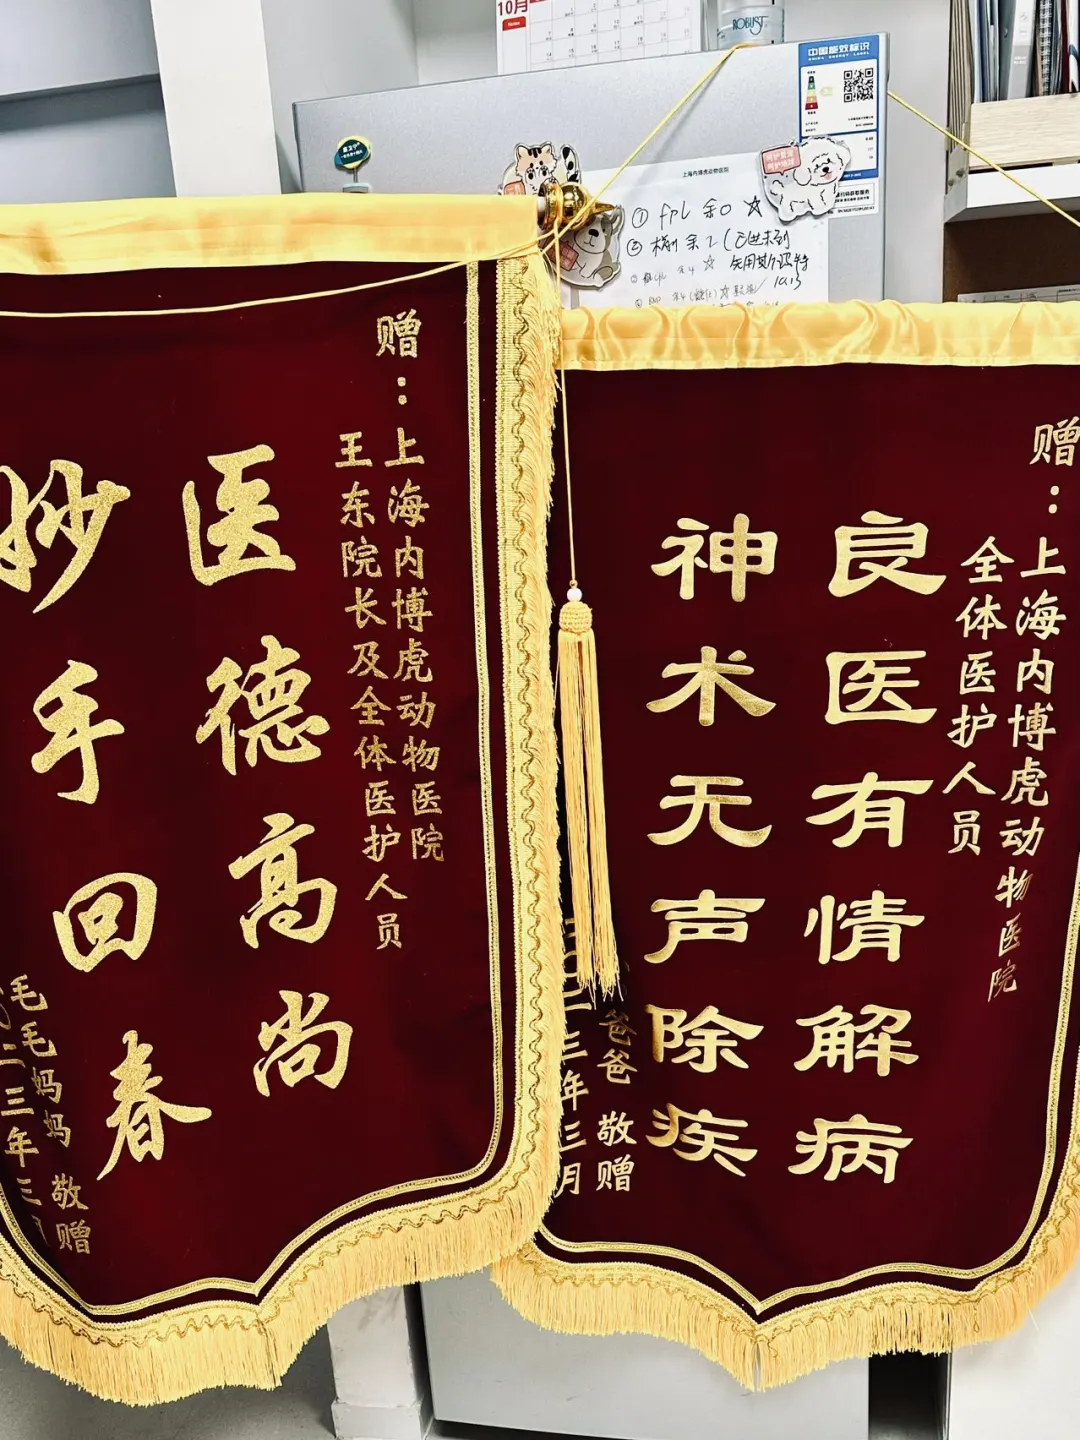 10月
ROBUST
中国能效标识
CHINA ENERGY LABEL
上海内博虎动物医院
① fpl 余0 ☆
② 余2
10.13
赠：上海内博虎动物医院
王东院长及全体医护人员
医德高尚
妙手回春
毛毛妈妈 敬赠
二三年三月
赠：上海内博虎动物医院
全体医护人员
良医有情解病
神术无声除疾
爸爸 敬赠
三年三月